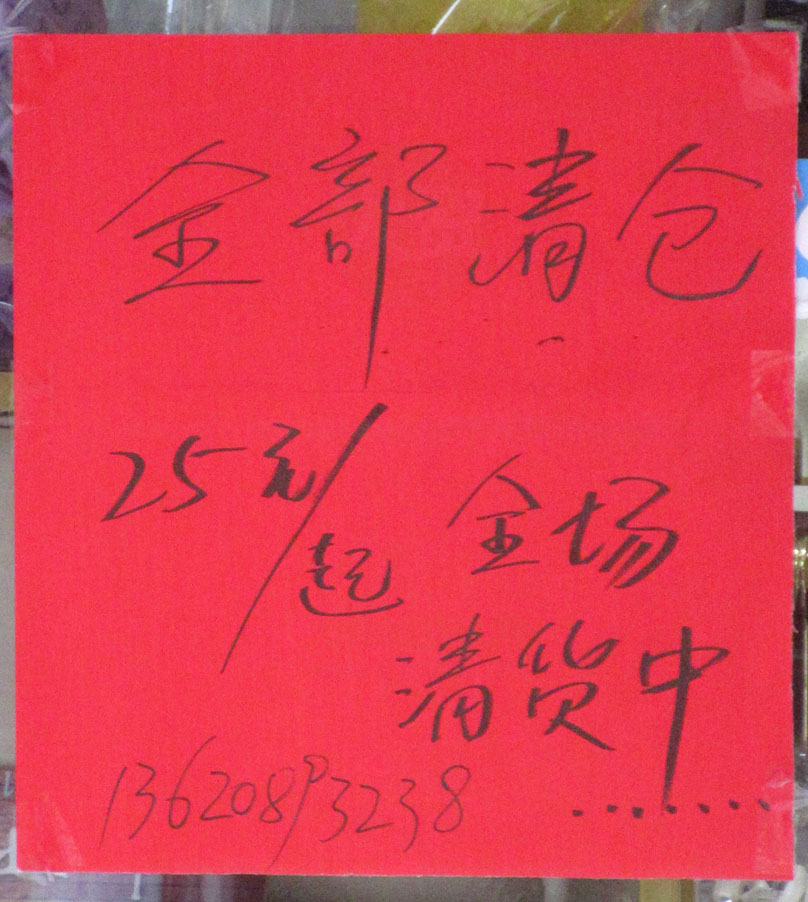 全部清仓
25元/起
全场
清货中.......
13620893238